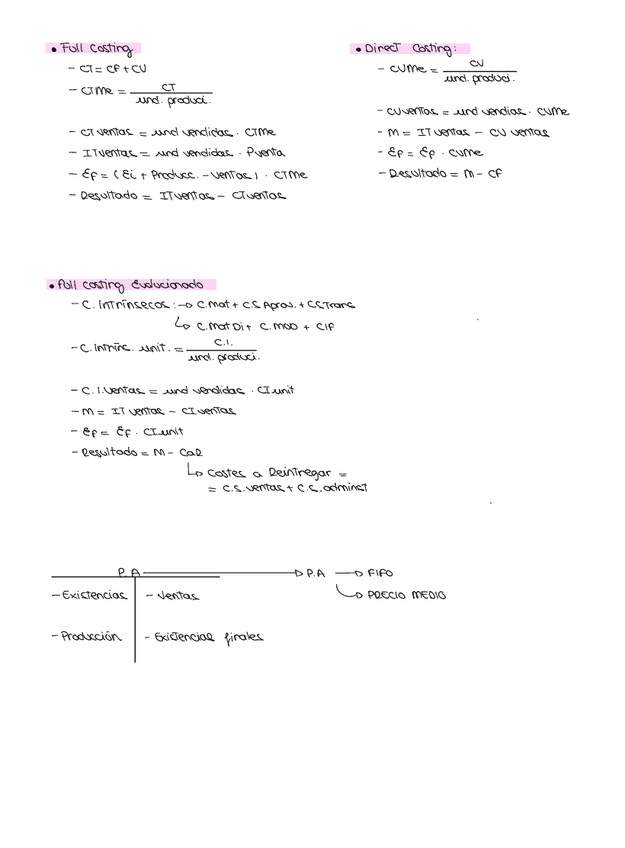 • Full Costing
- CT = CF + CV
- CTMe = CT / und. produci.
- CT ventas = und vendidas · CTMe
- IT ventas = und vendidas · Pventa
- Ef = (Ei + Producc. - ventas) · CTMe
- Resultado = IT ventas - CT ventas
• Direct Costing:
- CVMe = CV / und. produci.
- CV ventas = und vendias · CVMe
- M = IT ventas - CV ventas
- Ef = Ef · CVMe
- Resultado = M - CF
• Full costing Evolucionado
- C. Intrínsecos: → C.mat + C.S Aprov. + C.S Trans
↳ C.Mat Di + C.MOD + CIF
- C. Intrínc. unit. = C.I. / und. produci.
- C.I. ventas = und vendidas · CI unit
- M = IT ventas - CI ventas
- Ef = Ef · CI unit
- Resultado = M - CaR
↳ Costes a Reintregar =
= C.S. ventas + C.S. adminst
P.A → P.A → FIFO
↳ PRECIO MEDIO
- Existencias - Ventas
- Producción - Existencias finales